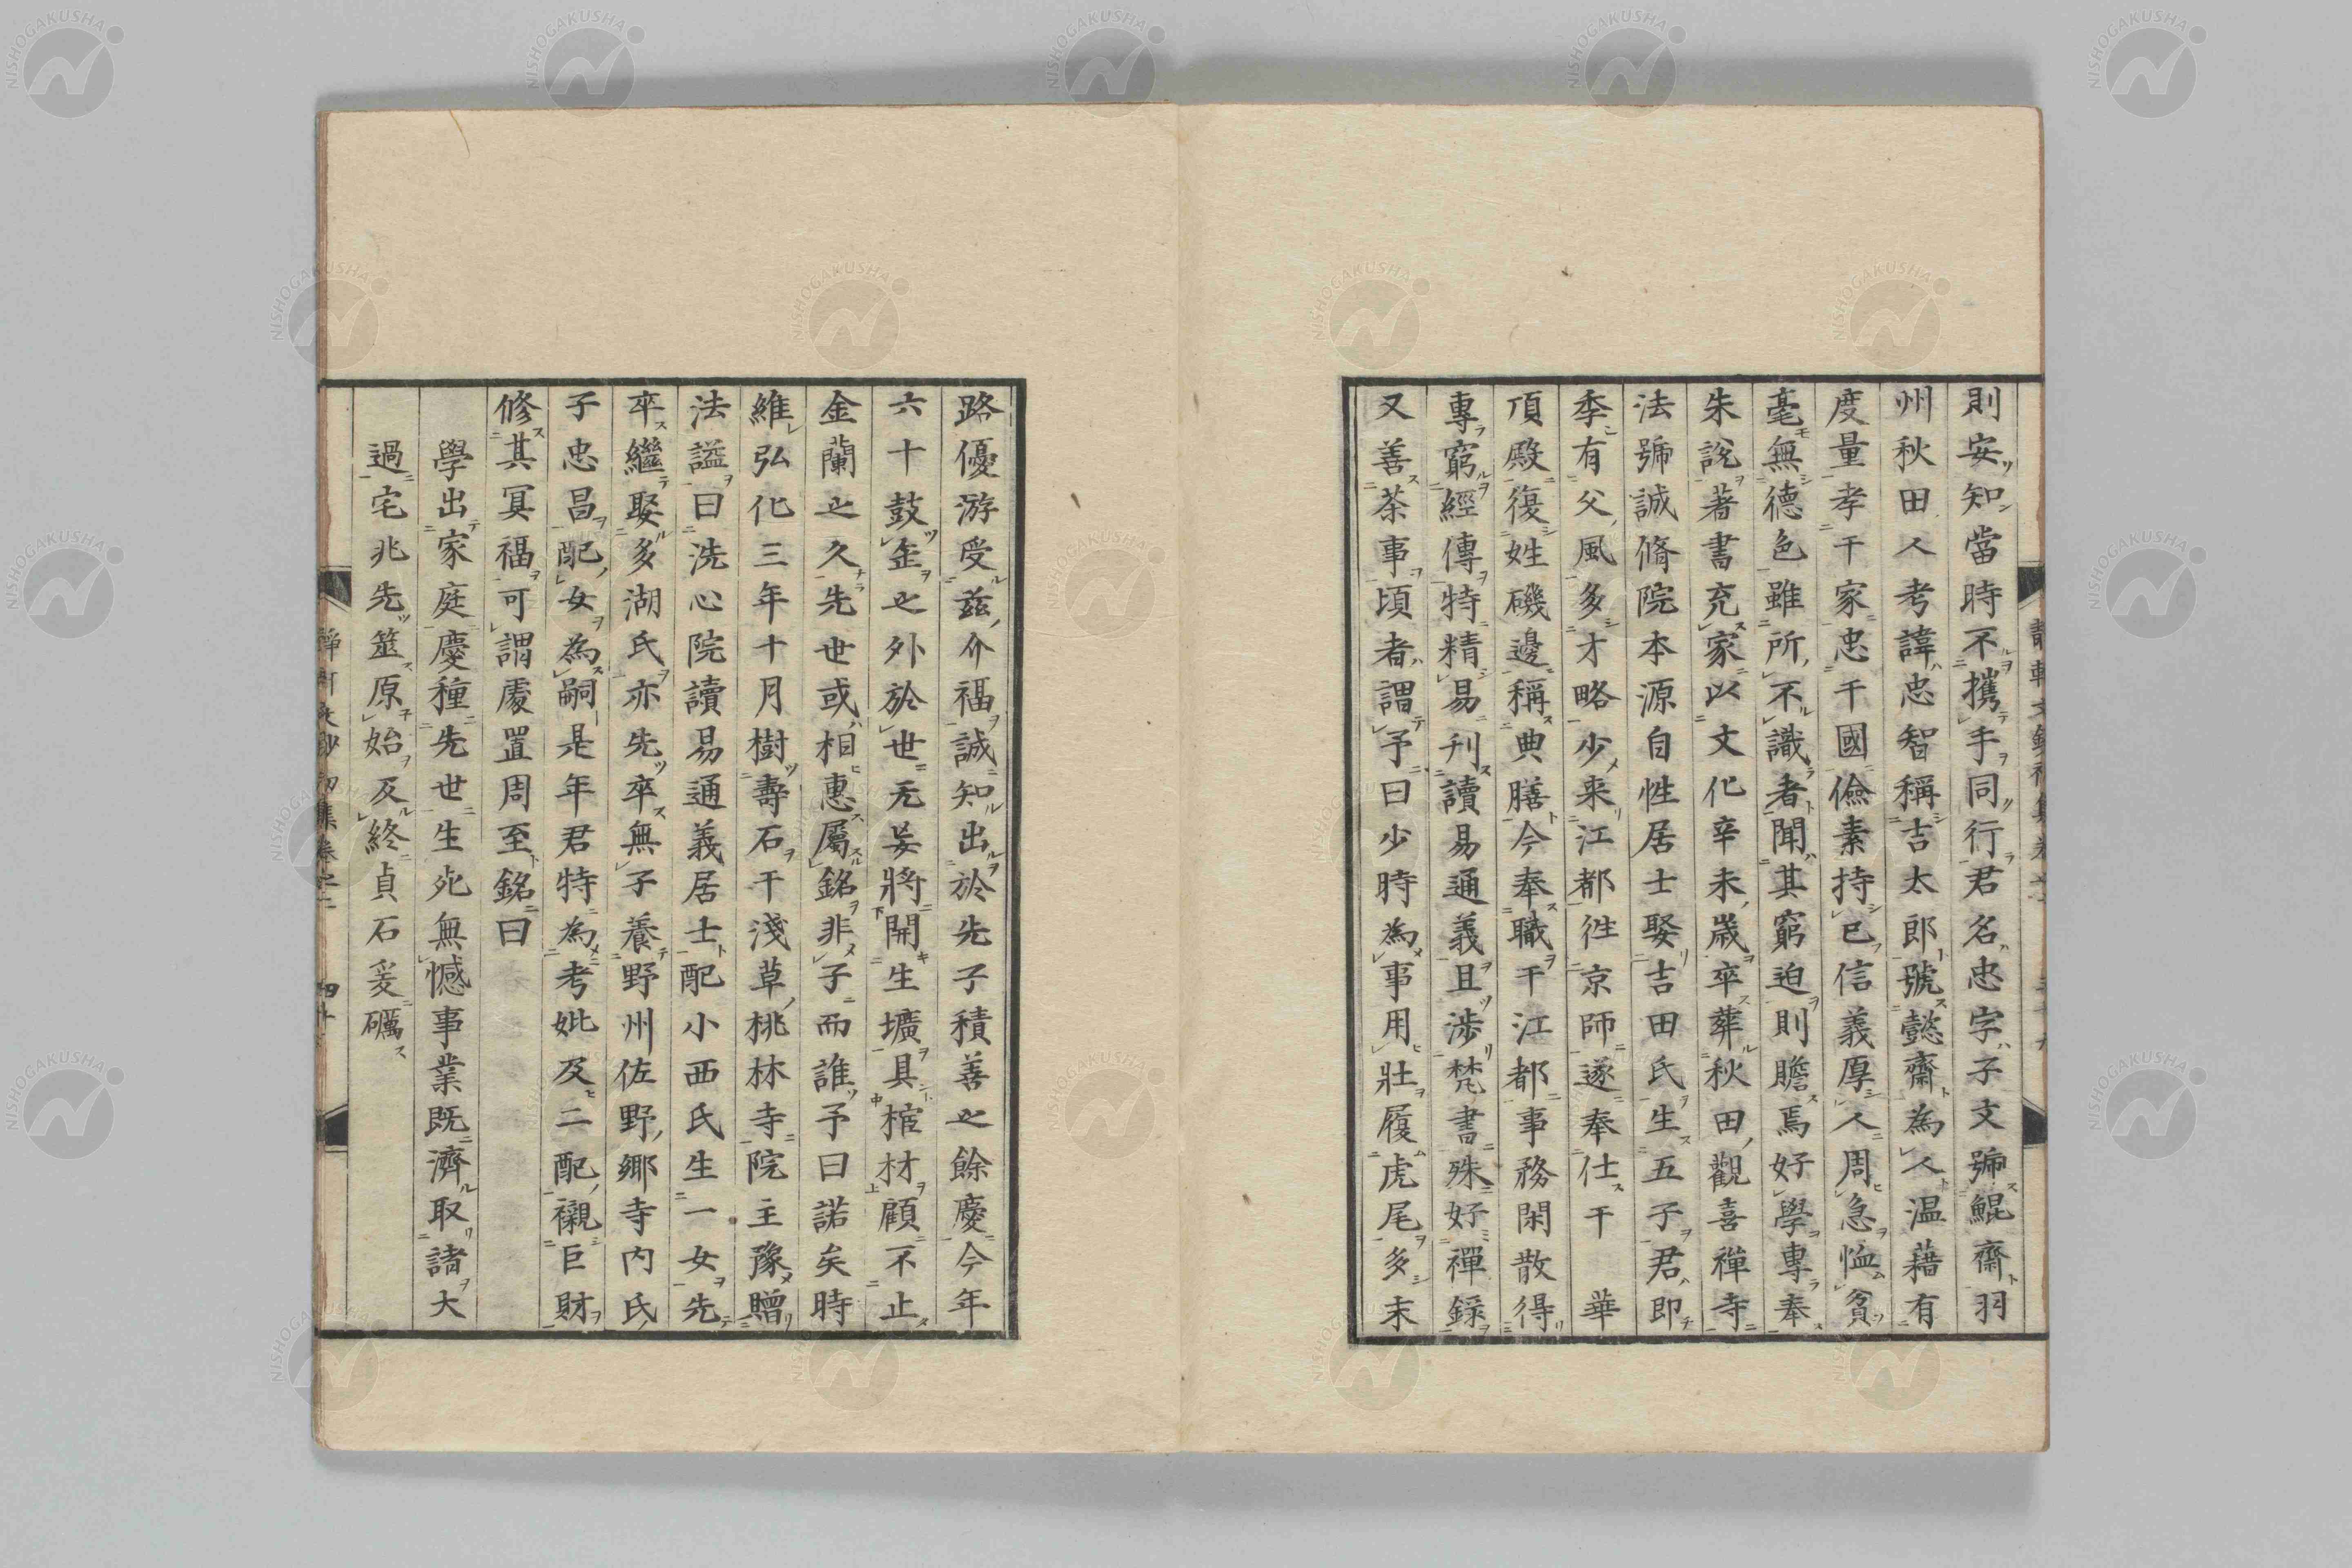 則安知當時不攜手同行君名忠字子文號鯤齋羽
州秋田人考諱忠智稱吉太郎號懿齋為人温藉有
度量孝于家忠于國儉素持己信義厚人周急恤貧
毫無德色雖所不識者聞其窮迫則贍焉好學專奉
朱說著書充家以文化辛未歲卒葬秋田觀喜禪寺
法號誠脩院本源自性居士娶吉田氏生五子君即
季有父風多才略少来江都徃京師遂奉仕于 華
頂殿復姓磯邊稱典膳今奉職于江都事務閑散得
專窮經傳特精易刊讀易通義且渉梵書殊好禪錄
又善茶事頃者謂予曰少時為事用壯履虎尾多末
路優游受茲介福誠知出於先子積善之餘慶今年
六十鼓缶之外於世无妄將開生壙具棺材顧不止
金蘭之久先世或相惠屬銘非子而誰予曰諾矣時
維弘化三年十月樹壽石于淺草桃林寺院主豫贈
法謚曰洗心院讀易通義居士配小西氏生一女先
卒繼娶多湖氏亦先卒無子養野州佐野鄉寺内氏
子忠昌配女為嗣是年君特為考妣及二配襯巨財
修其冥福可謂處置周至銘曰
學出家庭慶種先世生死無憾事業既濟取諸大
過宅兆先筮原始及終貞石爰礪
NISHOGAKUSHA